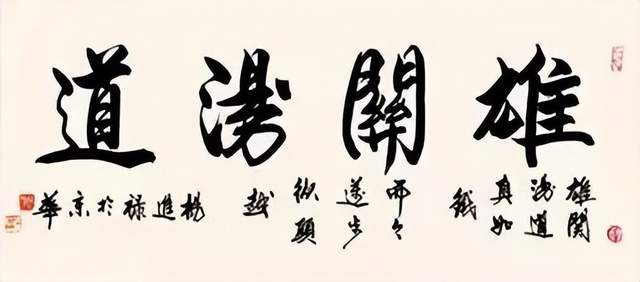 雄關漫道
雄関
漫道
真如
鐵
而今
邁步
從頭
越
楊進祿於京華